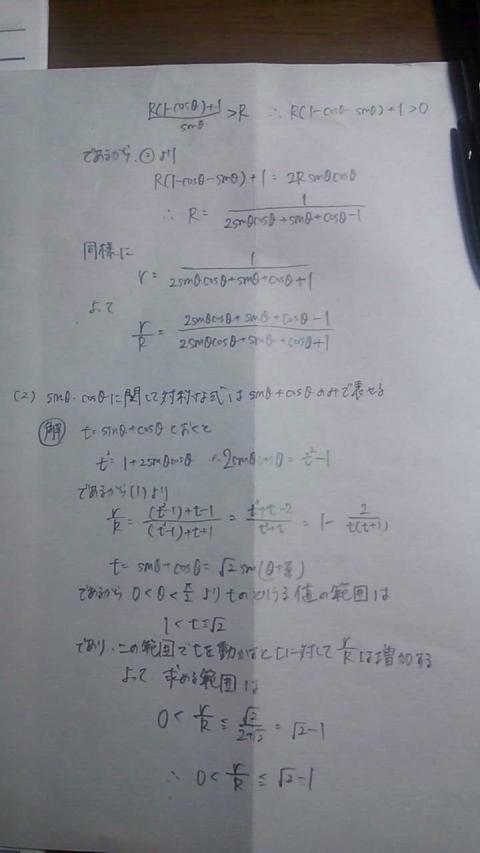 (R(1-cosθ)+1)/sinθ > R ∴ R(1-cosθ-sinθ)+1>0
であるから、②より
R(1-cosθ-sinθ)+1 = 2Rsinθcosθ
∴ R = 1/(2sinθcosθ+sinθ+cosθ-1)
同様に
r = 1/(2sinθcosθ+sinθ+cosθ+1)
よって
r/R = (2sinθcosθ+sinθ+cosθ-1)/(2sinθcosθ+sinθ+cosθ+1)
(2) sinθ、cosθに関して対称な式はsinθ+cosθのみで表せる
解 t=sinθ+cosθとおくと
t²=1+2sinθcosθ ∴2sinθcosθ=t²-1
であるから(1)より
r/R = ((t²-1)+t-1)/((t²-1)+t+1) = (t²+t-2)/(t²+t) = 1 - 2/(t(t+1))
t=sinθ+cosθ=√2sin(θ+π/4)
であるから 0<θ<π/2 よりtのとりうる値の範囲は
1<t≦√2
であり、この範囲でtを動かすとtに対してr/Rは増加する
よって、求める範囲は
0 < r/R ≦ √2/(2+√2) = √2-1
∴ 0 < r/R ≦ √2-1